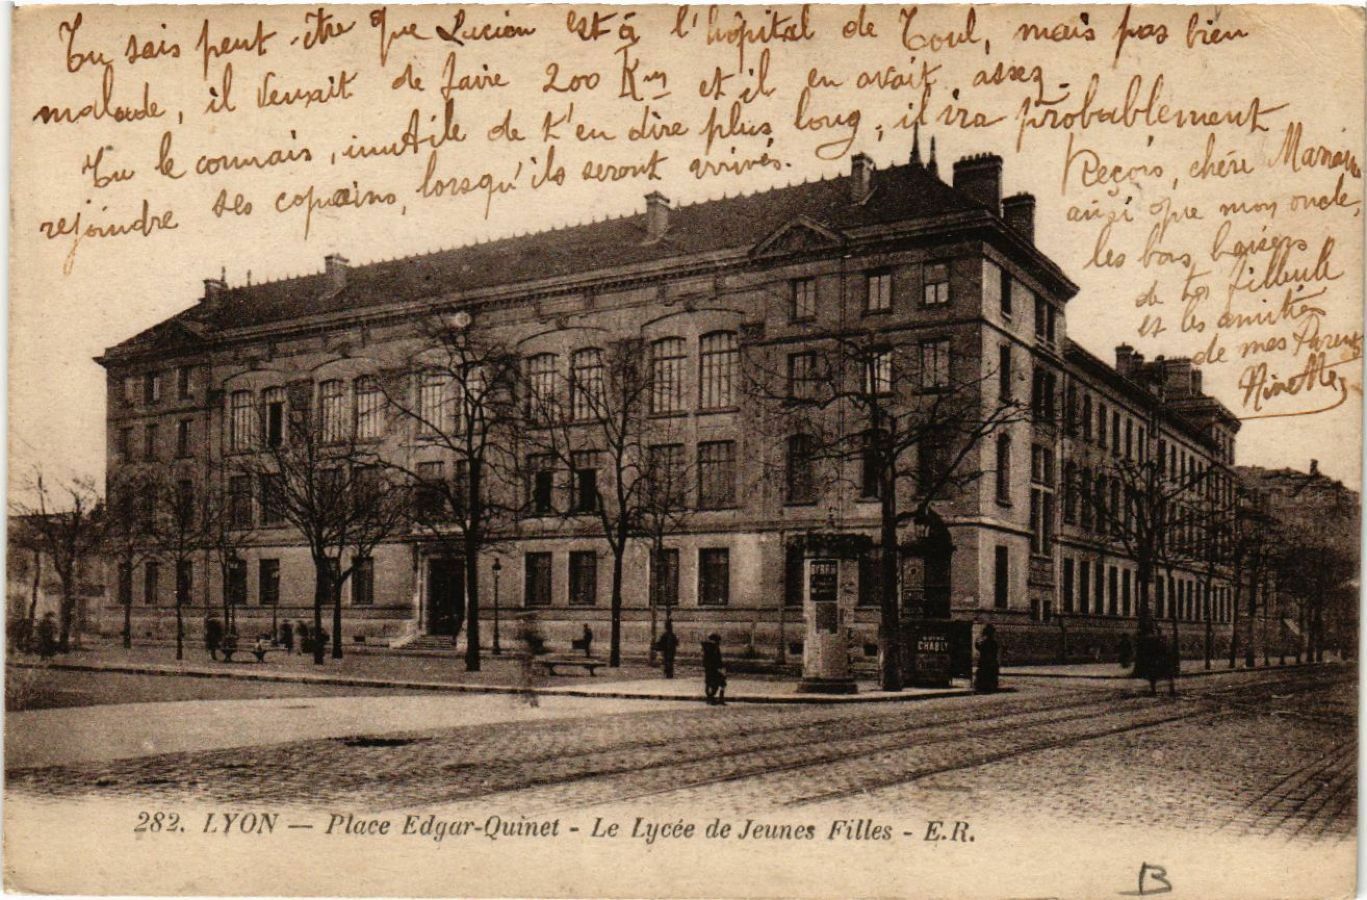 Tu sais peut-être que Lucien est à l'hôpital de Toul, mais pas bien
malade, il venait de faire 200 Km et il en avait assez.
Tu le connais, inutile de t'en dire plus long, il ira probablement
rejoindre ses copains, lorsqu'ils seront arrivés.
Reçois, chère
ainsi que mon oncle,
les bons baisers
de ta filleule
et les amitiés
de mes Parents
Ninette
CHABLY
282. LYON — Place Edgar-Quinet - Le Lycée de Jeunes Filles - E.R.
B